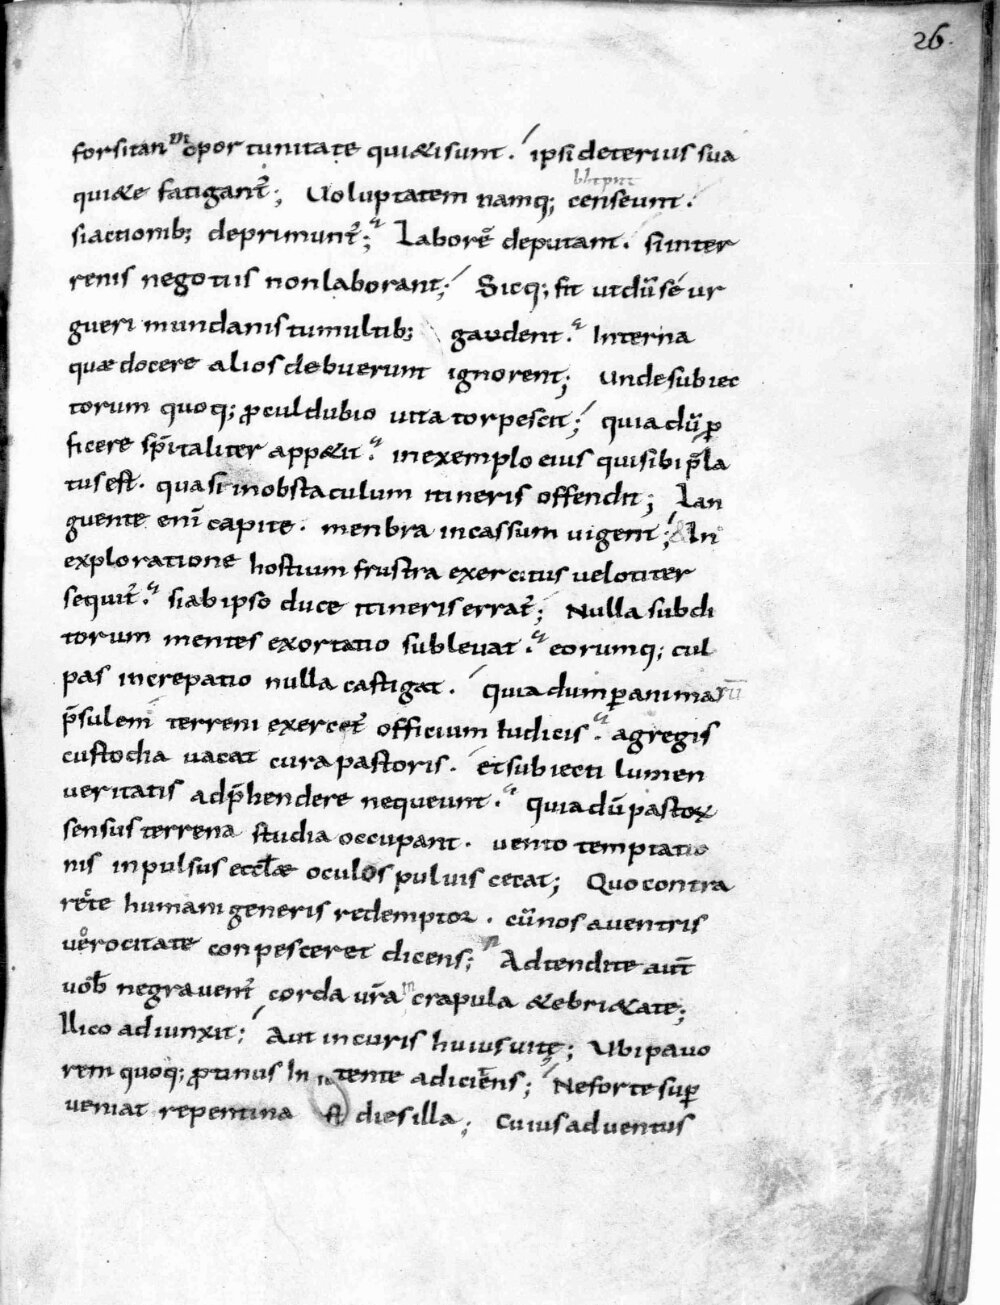 26.
forsitan inoportunitate qui&isunt. ipsi deterius sua
qui&e fatigant̄; Uoluptatem namq; censeunt.
siactionib; deprimunt̄; Laborē deputant. siinter
renis negotiis nonlaborant; Sicq; fit utdū sé ur
gueri mundanis tumultib; gaudent. Interna
quæ docere alios debuerunt ignorent; Undesubiec
torum quoq; ꝓculdubio uita torpescit; quia dū ꝓ
ficere sp̄italiter app&it. inexemplo eius quisibi p̄la
tus est. quasi inobstaculum itineris offendit; Lan
guente enī capite. menbra incassum uigent; & In
exploratione hostium frustra exercitus uelociter
sequit̄. siab ipso duce itineris errat̄; Nulla subdi
torum mentes exortatio subleuat. eorumq; cul
pas increpatio nulla castigat. Quia dum ꝑ animarū
p̄sulem terreni exercet̄ officium iudicis. agregis
custodia uacat cura pastoris. et subiecti lumen
ueritatis adp̄hendere nequeunt. quia dū pastor
sensus terrena studia occupant. uento temptatio
nis inpulsus eccl̄æ oculos puluis cecat; Quo contra
rēte humani generis redemptor. cū nos a uentris
uerocitate conpesceret dicens; Adtendite aūt
uob̄ negrauent̄ corda ur̄a in crapula &ebri&ate;
Ilico adiunxit; Aut in curis huius uitę; Ubi pauo
rem quoq; ꝓtinus In tente adiciens; Neforte suꝑ
ueniat repentina dies illa; Cuius aduentus